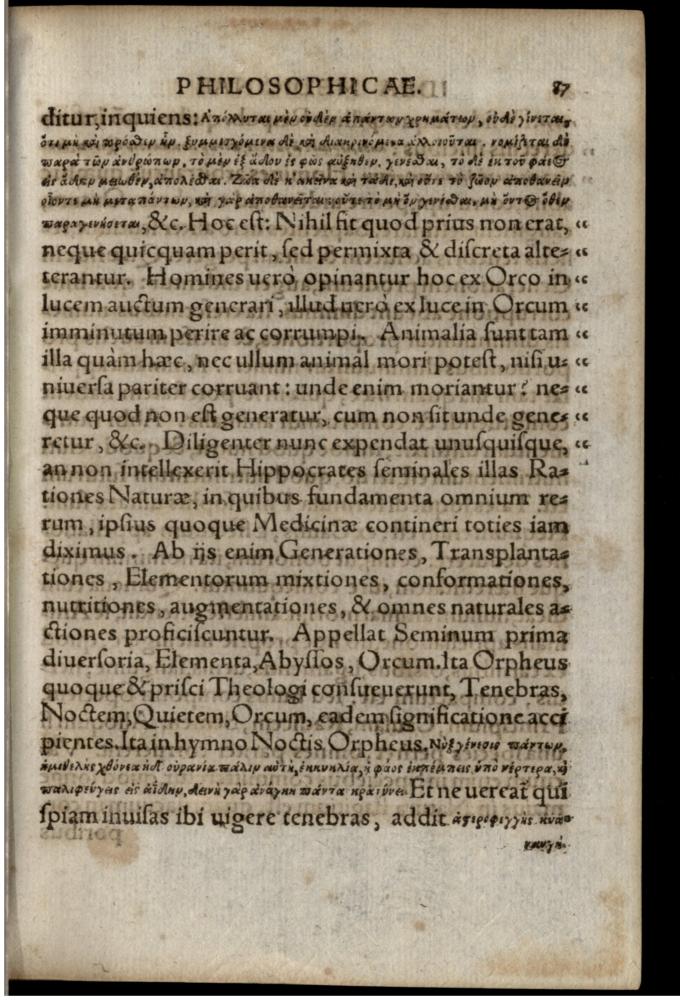 PHILOSOPHICAE. 87
ditur, inquiens: Ἀπόλλυται μὲν οὐδὲν ἁπάντων χρημάτων, οὐδὲ γίνεται,
ὅτι μὴ καὶ πρόσθεν ἦν. ξυμμισγόμενα δὲ καὶ διακρινόμενα ἀλλοιοῦται. νομίζεται δὲ
παρὰ τῶν ἀνθρώπων, τὸ μὲν ἐξ ᾅδου ἐς φῶς αὐξηθὲν, γενέσθαι, τὸ δὲ ἐκ τοῦ φάεος
εἰς ᾅδην μειωθὲν, ἀπολέσθαι. Ζῶα δὲ κἀκεῖνα καὶ τάδε, καὶ οὔτε τὸ ζῶον ἀποθανεῖν
οἷόντε μὴ μετὰ πάντων, καὶ γὰρ ἀποθανεῖται; οὔτε τὸ μὴ ὂν γενέσθαι, μὴ ὄντος ὅθεν
παραγενήσεται, &c. Hoc est: Nihil fit quod prius non erat, “
neque quicquam perit, sed permixta & discreta alte= “
terantur. Homines uerò opinantur hoc ex Orco in “
lucem auctum generari, illud uerò ex luce in Orcum “
imminutum perire ac corrumpi. Animalia sunt tam “
illa quàm hæc, nec ullum animal mori potest, nisi u= “
niuersa pariter corruant: unde enim moriantur? ne= “
que quod non est generatur, cum non sit unde gene= “
retur, &c. Diligenter nunc expendat unusquisque, “
an non intellexerit Hippocrates seminales illas Ra=
tiones Naturæ, in quibus fundamenta omnium re=
rum, ipsius quoque Medicinæ contineri toties iam
diximus. Ab ijs enim Generationes, Transplanta=
tiones, Elementorum mixtiones, conformationes,
nutritiones, augmentationes, & omnes naturales a=
ctiones proficiscuntur. Appellat Seminum prima
diuersoria, Elementa, Abyssos, Orcum. Ita Orpheus
quoque & prisci Theologi consueuerunt, Tenebras,
Noctem, Quietem, Orcum, eadem significatione acci
pientes. Ita in hymno Noctis, Orpheus. Νὺξ γένεσις πάντων,
ἡμιτελὴς χθόνια ἠδ' οὐρανία πάλιν αὐτὴ, ἣ φάος ἐκπέμπεις ὑπὸ νέρτερα, καὶ
πάλι φεύγεις εἰς ἀίδην, δεινὴ γὰρ ἀνάγκη πάντα κρατύνει. Et ne uereat̃ qui
spiam inuisas ibi uigere tenebras, addit